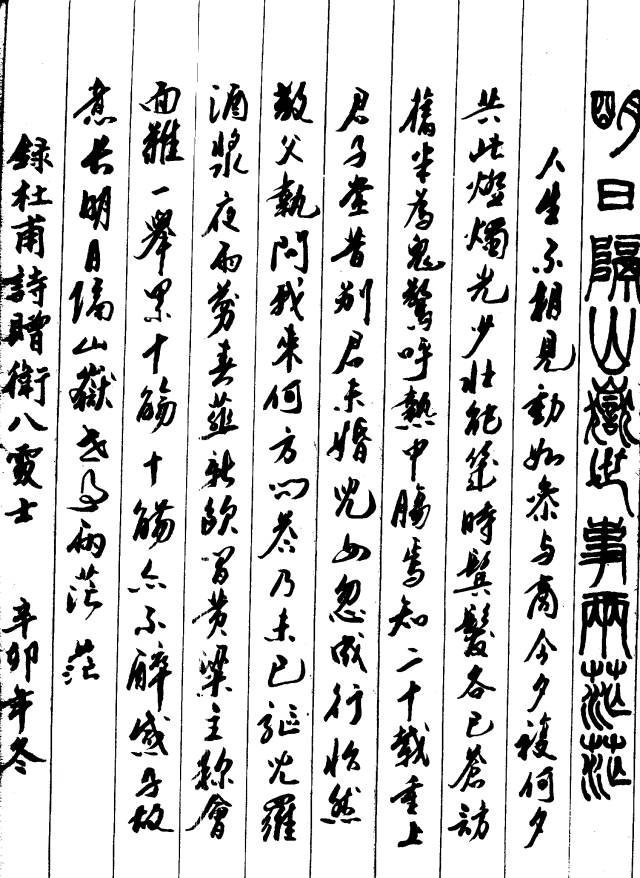 明日隔山嶽世事兩茫茫
人生不相見動如參与商今夕複何夕
共此燈燭光少壮能幾時鬓髮各已蒼訪
舊半為鬼驚呼熱中腸焉知二十載重上
君子堂昔别君未婚兒女忽成行怡然
敬父執問我来何方问答乃未已驱兒羅
酒漿夜雨剪春韮新炊间黄粱主称會
面難一舉累十觴十觴亦不醉感子故
意长明日隔山嶽世事兩茫茫
録杜甫詩贈衛八處士 辛卯年冬